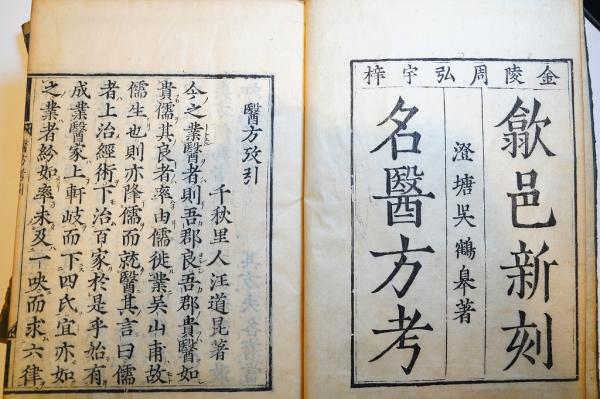 金陵周弘宇梓
歙邑新刻
澄塘吳鶴皋著
名醫方考
醫方攷引
千秋里人汪道昆著
今之業醫者則吾郡良吾郡貴醫如
貴儒其良者率由儒徙業吳山甫故
儒生也則亦降儒而就醫其言曰儒
者上治經術下治百家於是乎始有
成業醫家上軒岐而下四氏宜亦如
之業者紛如率未及一吷而求六律
醫方考引